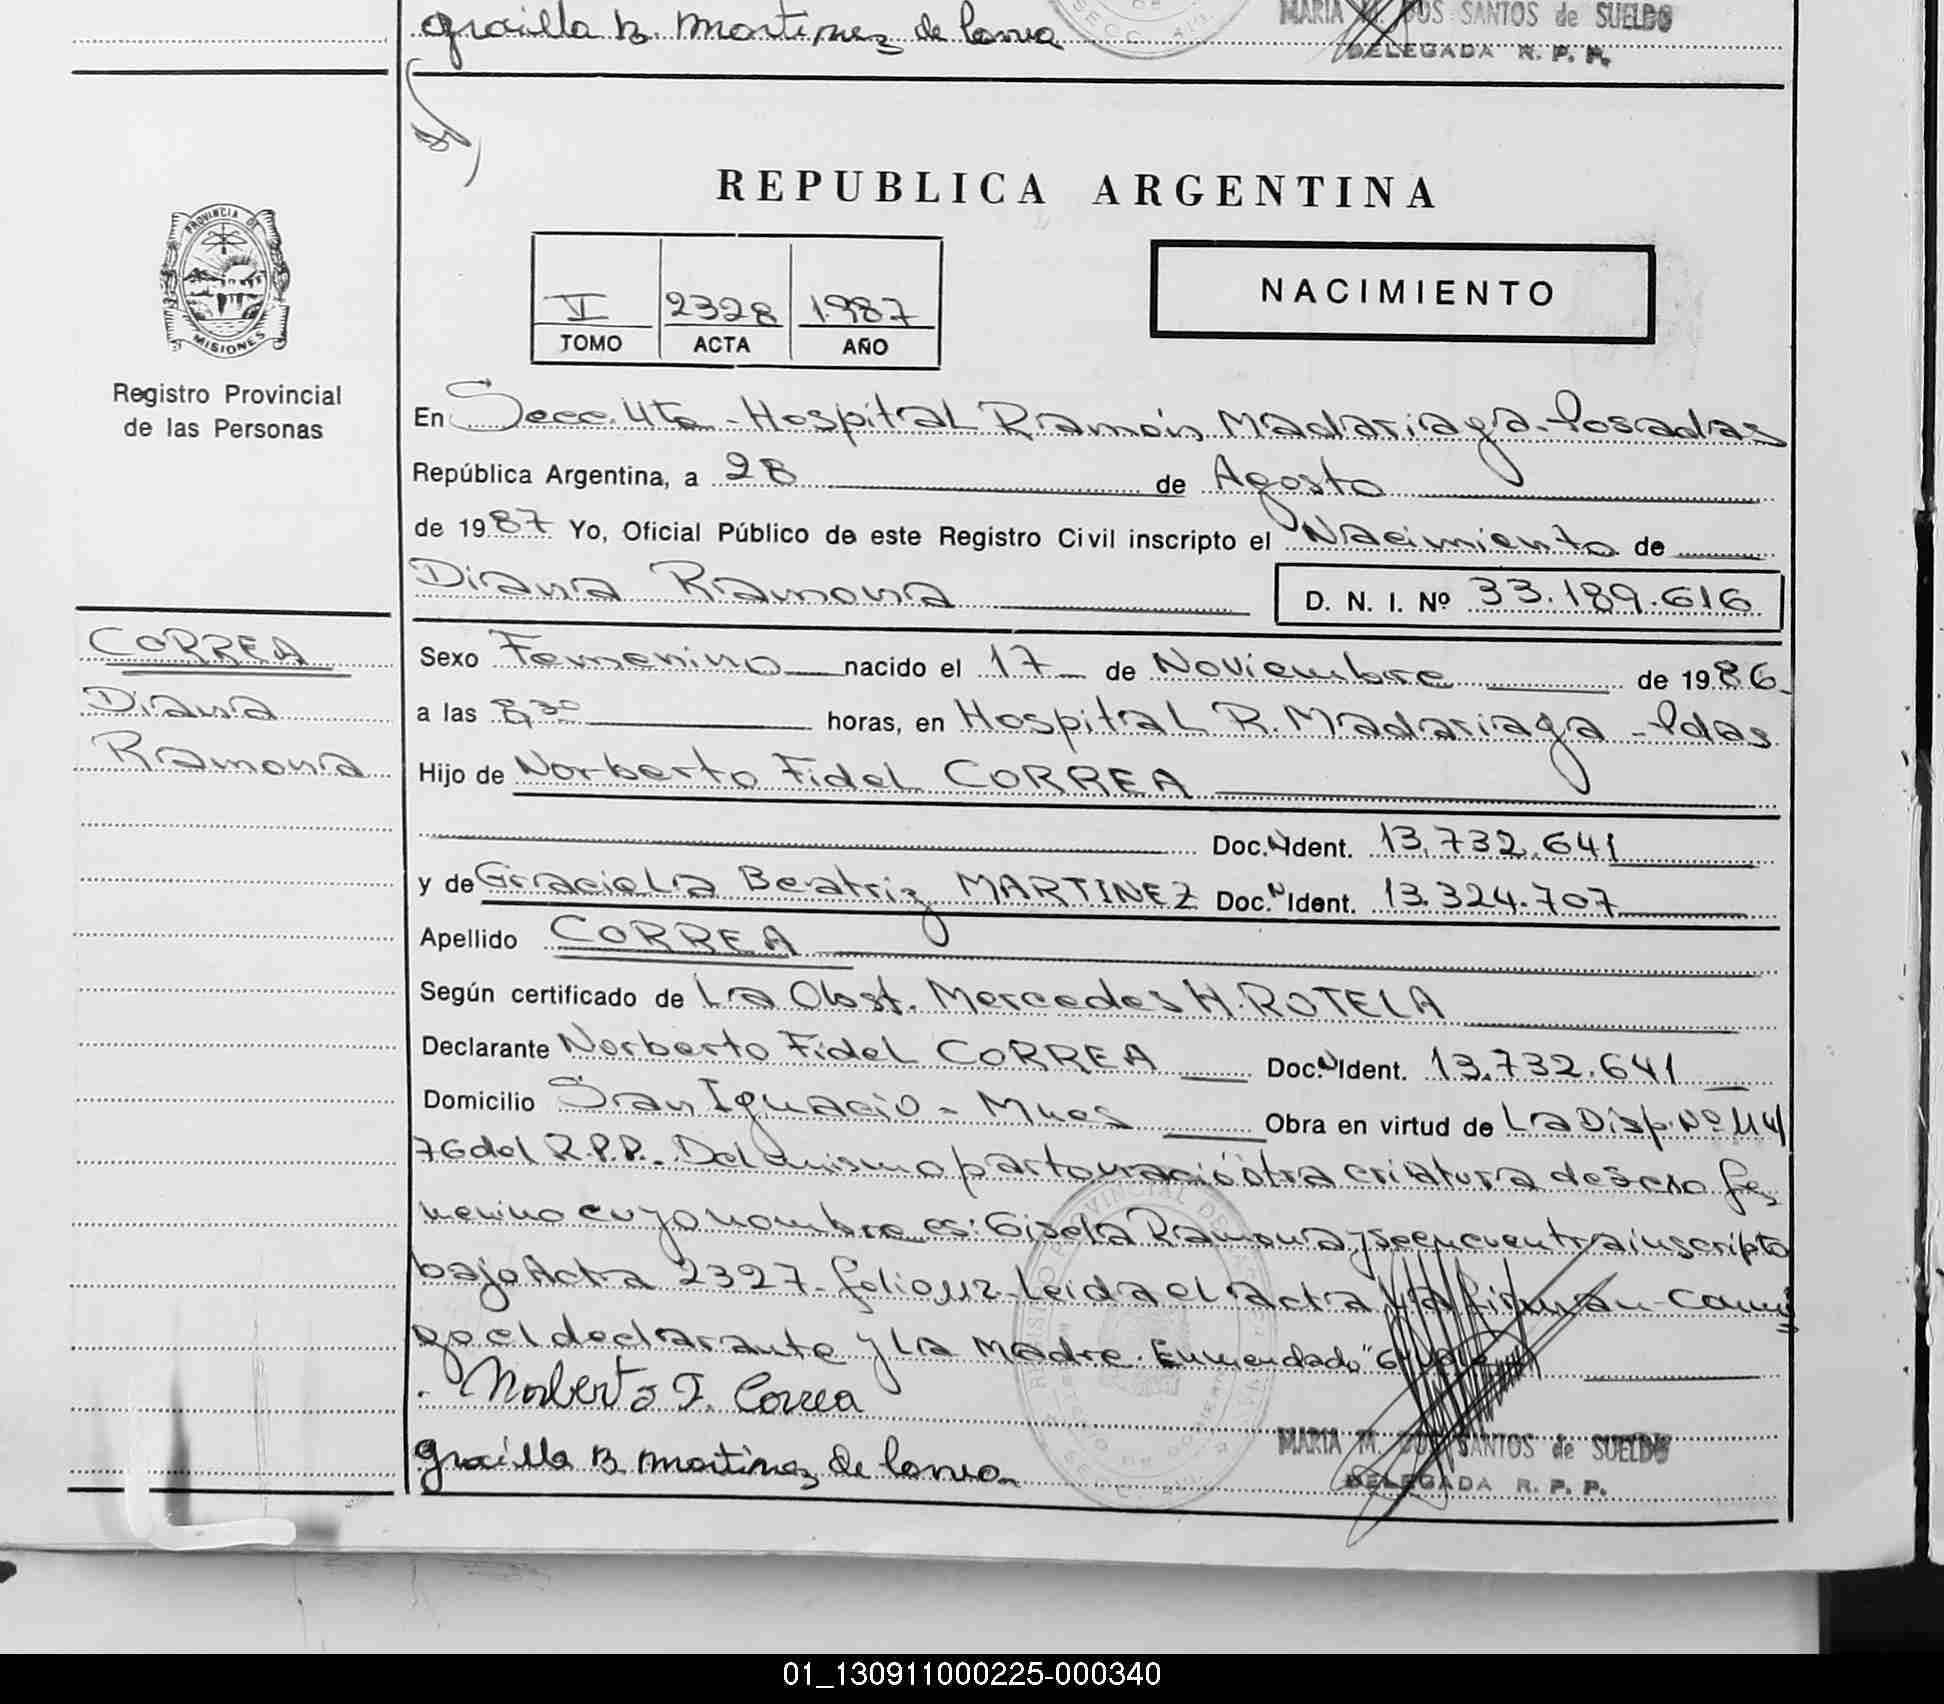 Graciella B. Martinez de Correa
MARIA M. DOS SANTOS de SUELDO
DELEGADA R. P. P.
REPUBLICA ARGENTINA
PROVINCIA DE
MISIONES
Registro Provincial
de las Personas
2328 1987
TOMO ACTA AÑO
NACIMIENTO
En Secc. 4ta - Hospital Ramón Madariaga - Posadas
República Argentina, a 28 de Agosto
de 1987 Yo, Oficial Público de este Registro Civil inscripto el Nacimiento de
Diana Ramona D. N. I. Nº 33.189.616
CORREA
Diana
Ramona
Sexo Femenino nacido el 17 de Noviembre de 1986
a las 8,30 horas, en Hospital R. Madariaga - Pdas
Hijo de Norberto Fidel CORREA
Doc. N Ident. 13.732.641
y de Graciela Beatriz MARTINEZ Doc. N Ident. 13.324.707
Apellido CORREA
Según certificado de La Obst. Mercedes H. ROTELA
Declarante Norberto Fidel CORREA Doc. N Ident. 13.732.641
Domicilio San Ignacio - Mnes Obra en virtud de La Disp. Nº 114/
76 del R.P.P. Del mismo parto nació otra criatura de sexo fe
menino cuyo nombre es: Gisela Ramona y se encuentra inscripto
bajo Acta 2327 - folio Leida el acta la firman con mi
go el declarante y la Madre. Enmendado
Norberto F. Correa
Graciella B. Martinez de Correa
MARIA M. DOS SANTOS de SUELDO
DELEGADA R. P. P.
01_130911000225-000340